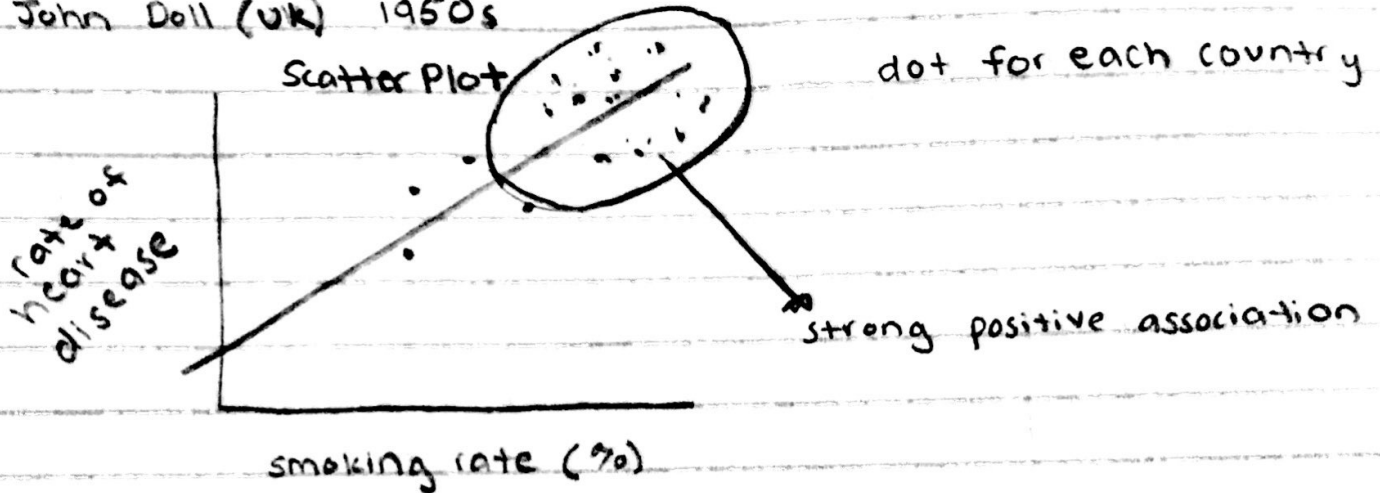 John Doll (UK) 1950s
Scatter Plot
dot for each country
rate of
heart
disease
strong positive association
smoking rate (%)